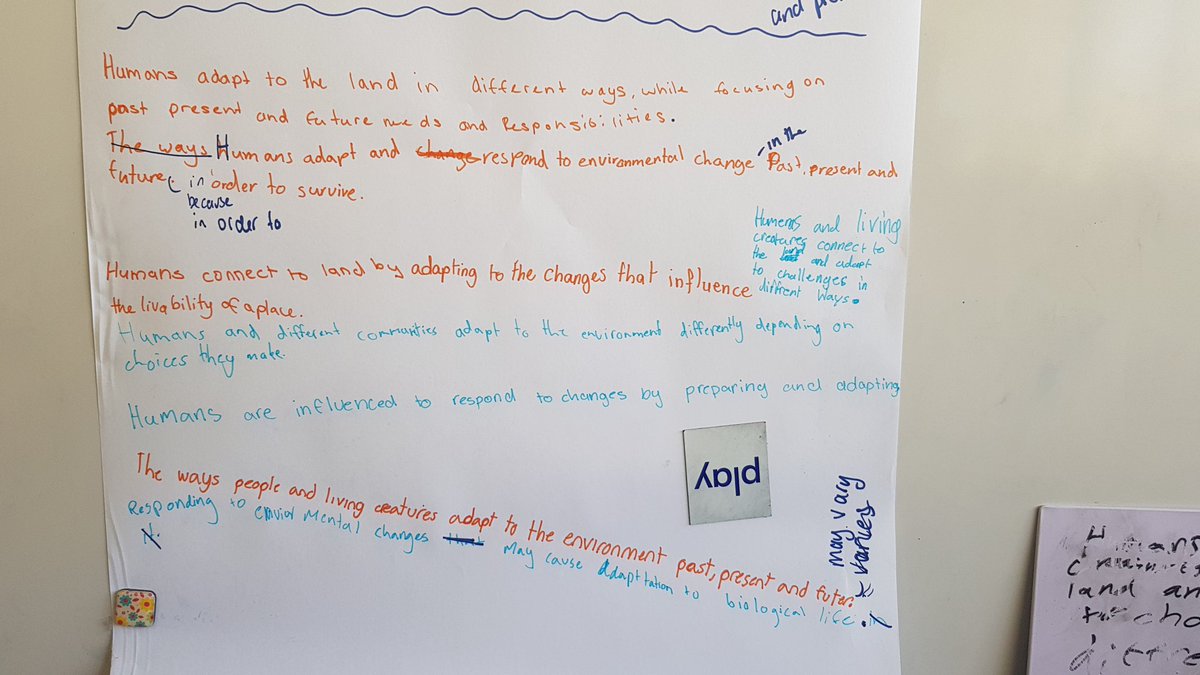 and pre
Humans adapt to the land in different ways, while focusing on
past present and future needs and Responsibilities.
The ways Humans adapt and change respond to environmental change - in the Past, present and
future, in order to survive.
because
in order to
Humens and living
creatures connect to
the land and adapt
to challenges in
diffrent ways.
Humans connect to land by adapting to the changes that influence
the livability of a place.
Humans and different communities adapt to the environment differently depending on
choices they make.
Humans are influenced to respond to changes by preparing and adapting
play
The ways people and living creatures adapt to the environment past, present and futer.
may vary
varies
Responding to enviormental changes that may cause adapttation to biological life.
it.
Humans
land an